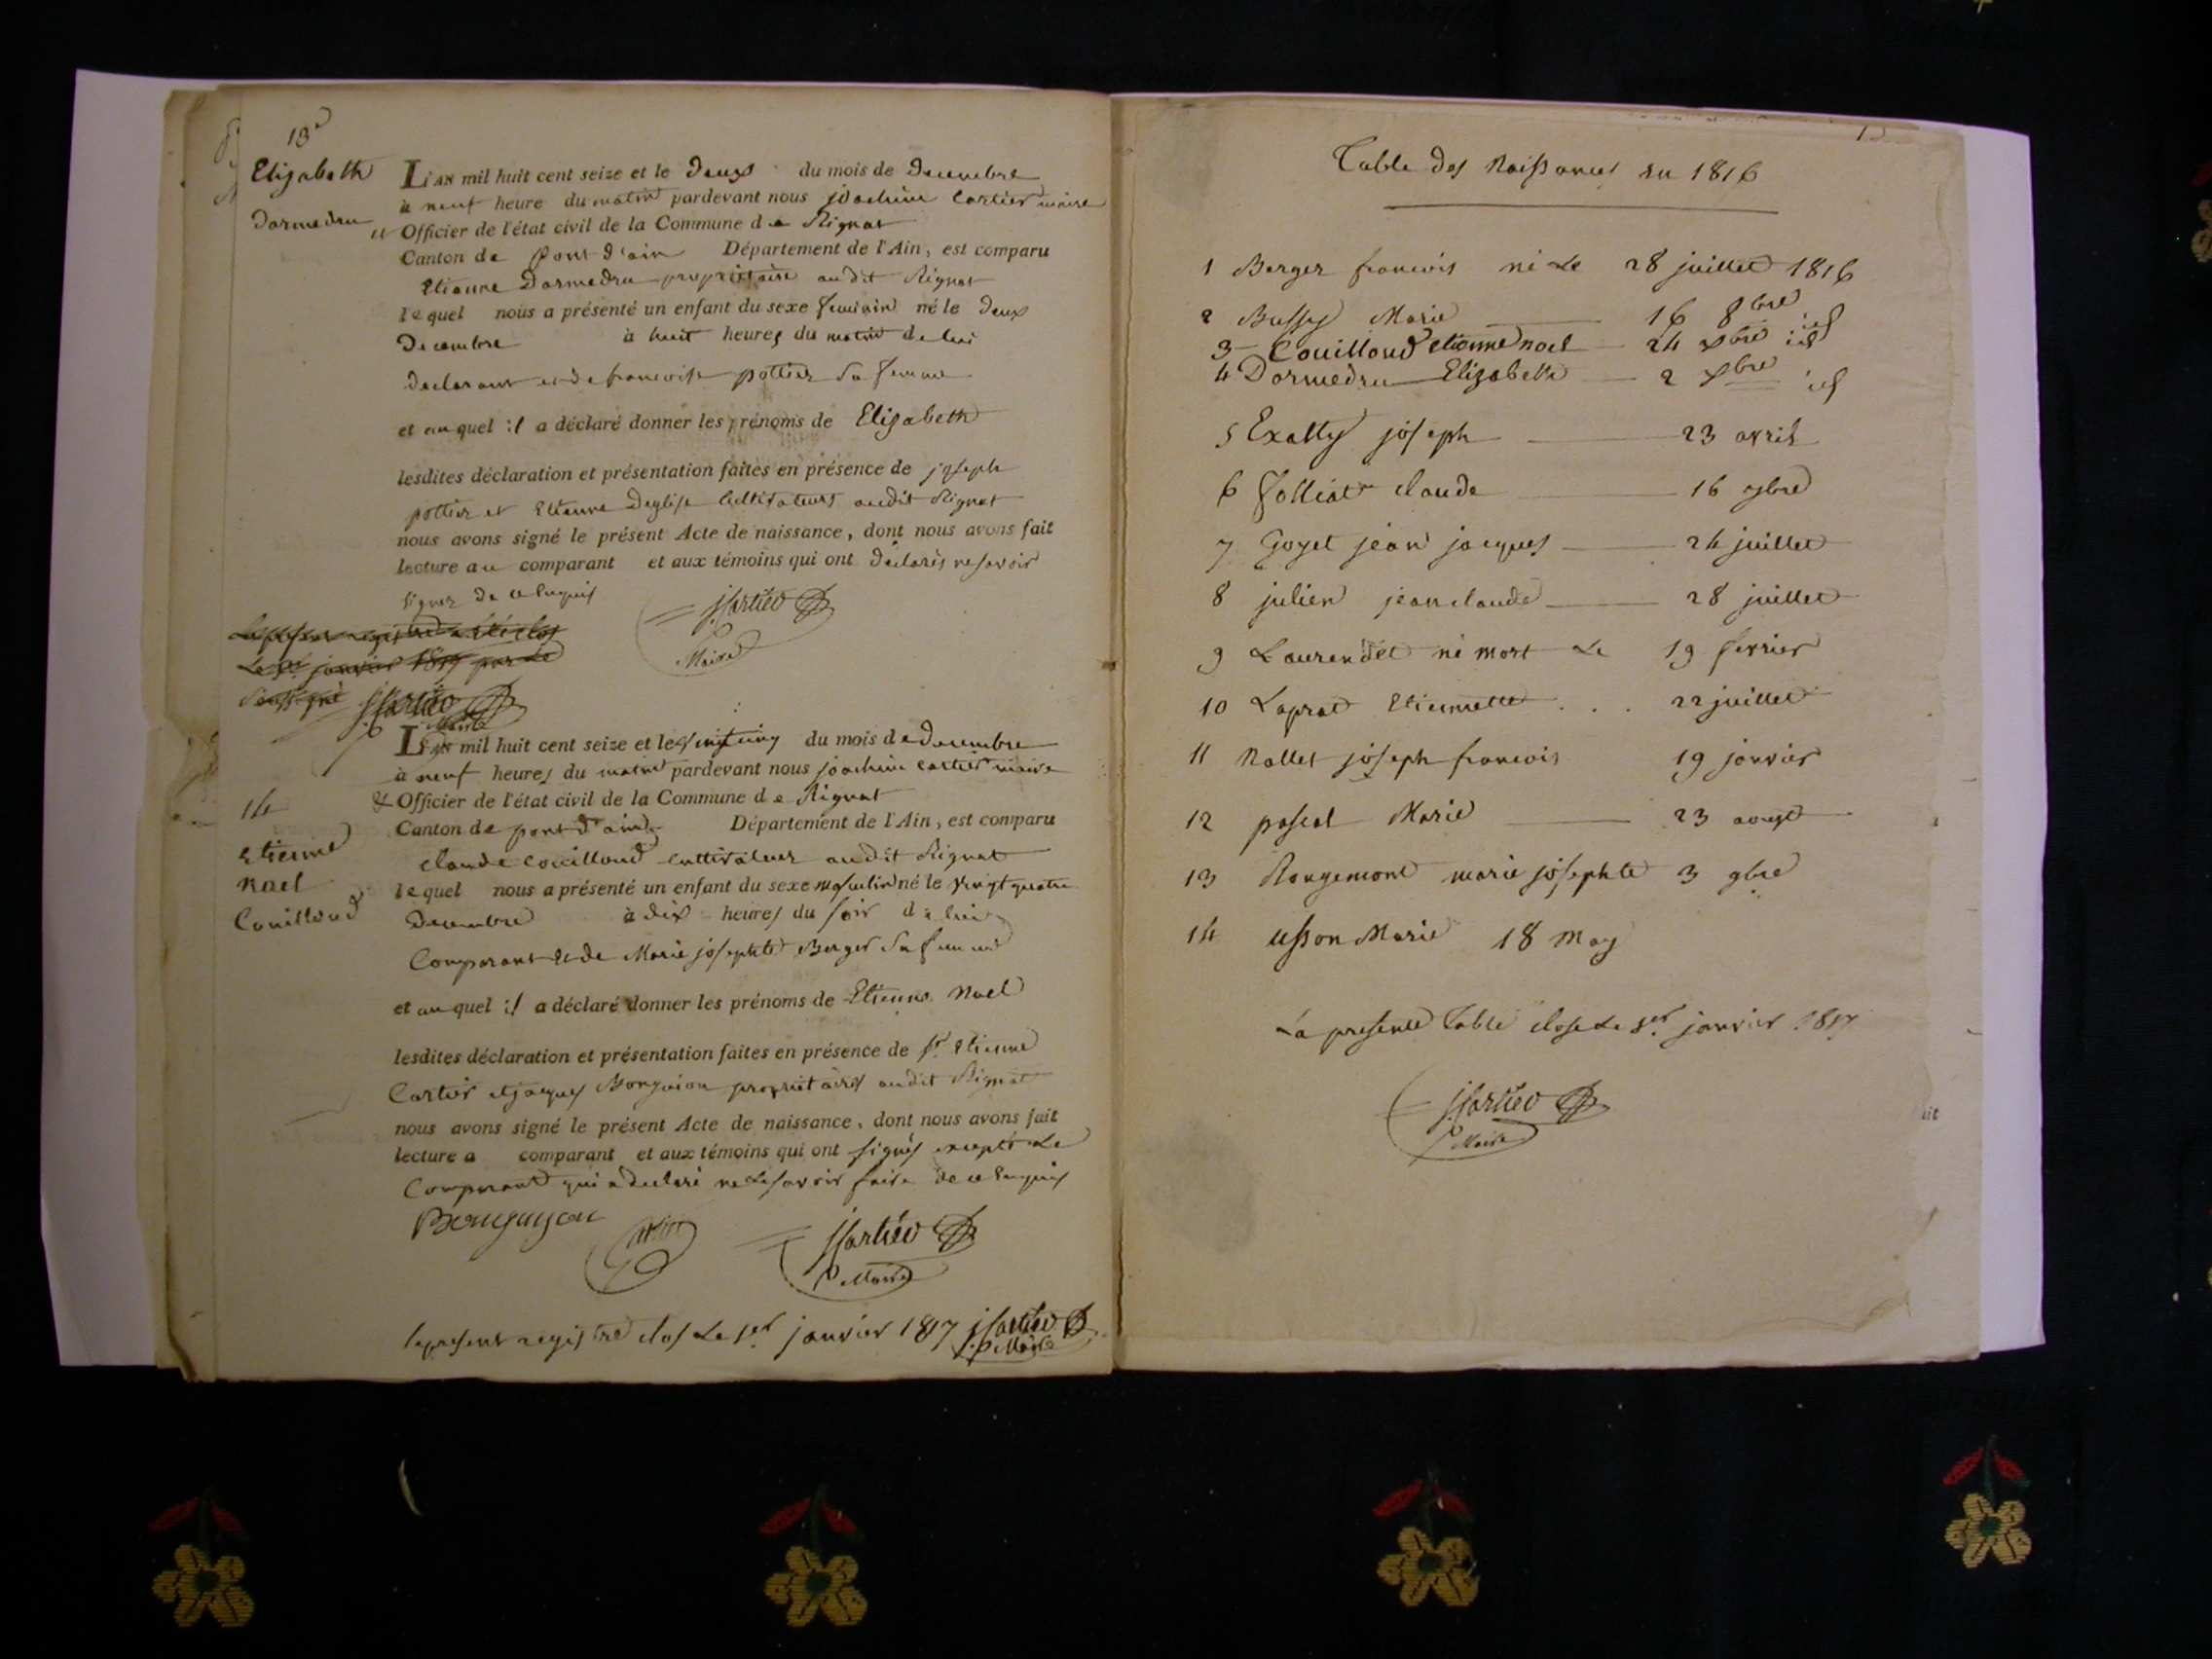 13e
Elizabeth
Dormedru
L'an mil huit cent seize et le deux du mois de decembre
à neuf heure du matin pardevant nous joachim Cartier maire
et Officier de l'état civil de la Commune de Rignat
Canton de pont d'ain Département de l'Ain, est comparu
Etienne Dormedru propriétaire audit Rignat
lequel nous a présenté un enfant du sexe feminin né le deux
decembre à huit heures du matin de lui
declarant et de francoise pottier sa femme
et auquel il a déclaré donner les prénoms de Elizabeth
lesdites déclaration et présentation faites en présence de joseph
pottier et Etienne Deglise Cultivateurs audit Rignat
nous avons signé le présent Acte de naissance, dont nous avons fait
lecture au comparant et aux témoins qui ont déclarés ne savoir
signer de ce enquis
jCartier
Maire
Le present registre a été clos
Le 1er janvier 1817 par Le
soussigné jCartier
Maire
14
Etienne
Noel
Couilloud
L'an mil huit cent seize et le vingt cinq du mois de decembre
à neuf heures du matin pardevant nous joachim Cartier maire
& Officier de l'état civil de la Commune de Rignat
Canton de pont d'ain Département de l'Ain, est comparu
Claude Couilloud cultivateur audit Rignat
lequel nous a présenté un enfant du sexe masculin né le vingt quatre
decembre à dix heures du soir de lui
Comparant et de Marie josephte Berger sa femme
et auquel il a déclaré donner les prénoms de Etienne Noel
lesdites déclaration et présentation faites en présence de sr Etienne
Cartier et jacques Bonguion propriétaires audit Rignat
nous avons signé le présent Acte de naissance, dont nous avons fait
lecture a comparant et aux témoins qui ont signés excepté Le
Comparant qui a declaré ne le savoir faire de ce enquis
jCartier
Maire
le present registre clos Le 1er janvier 1817 jCartier
Maire
Table des Naissances en 1816
1 Berger francois né Le 28 juillet 1816
2 Bussy Marie 16 8bre id
3 Couilloud etienne noel 24 xbre id
4 Dormedru Elizabeth 2 xbre id
5 Exalty joseph 23 avril
6 folliat claude 16 9bre
7 Goyet jean jacques 24 juillet
8 julien jean claude 28 juillet
9 Laurendet né mort Le 19 fevrier
10 Laprat Etiennette . . . 22 juillet
11 Nallet joseph francois 19 janvier
12 pascal Marie 23 aougt
13 Rougemont marie josephte 3 9bre
14 usson Marie 18 may
La presente Table close Le 1er janvier 1817
jCartier
Maire